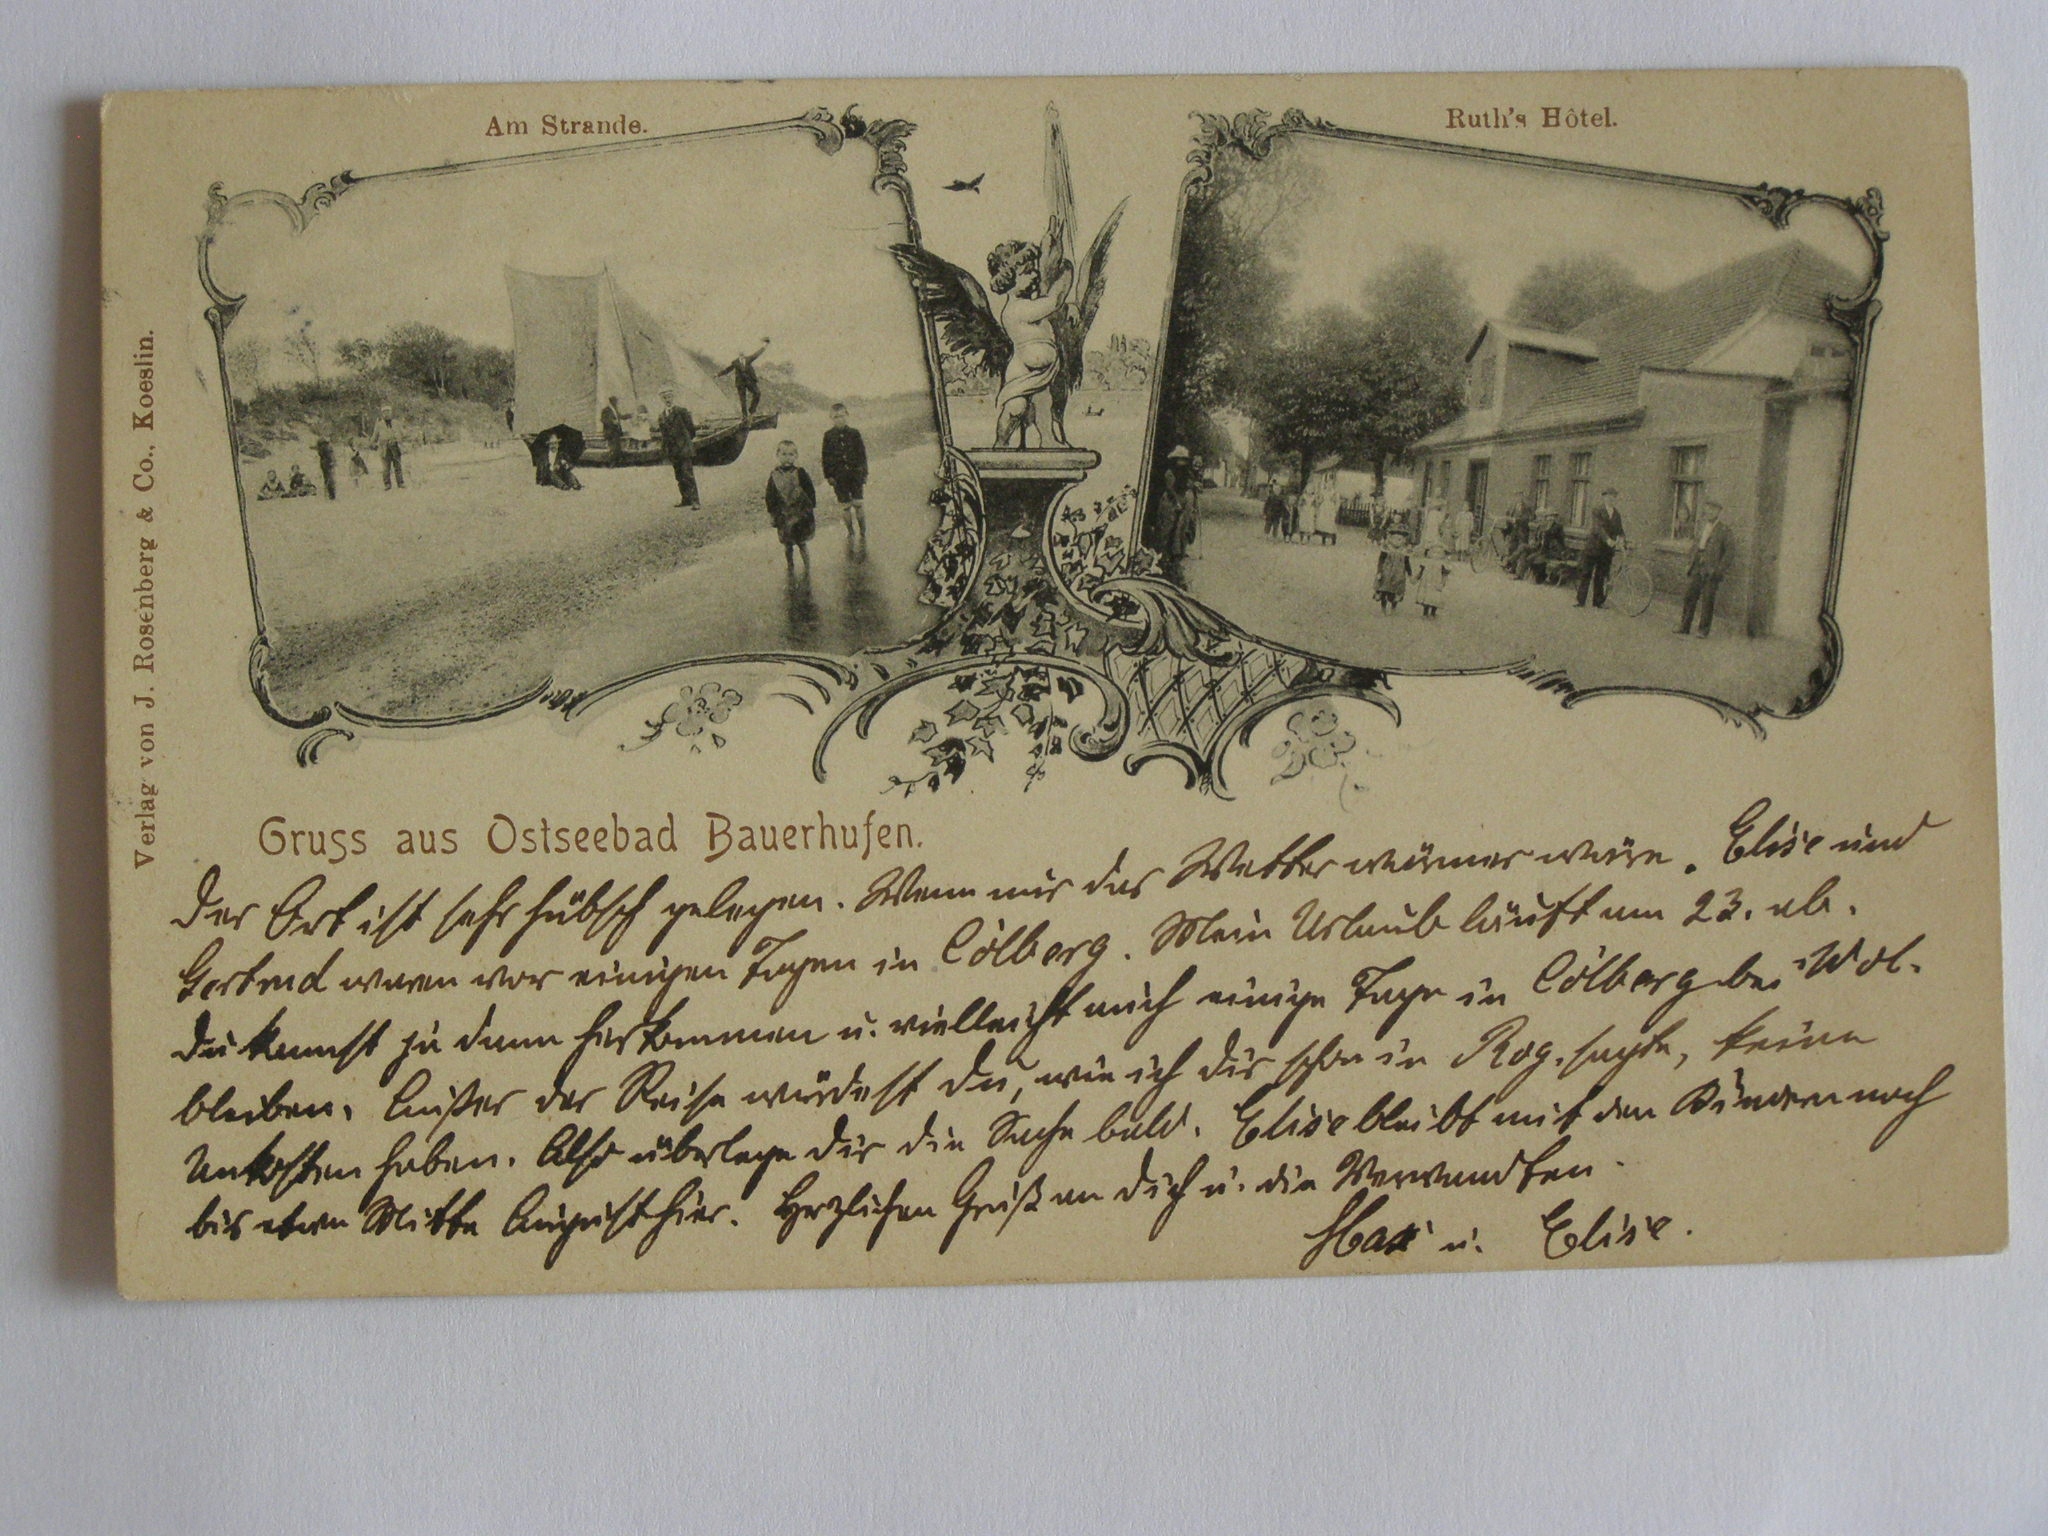 Am Strande.
Ruth's Hôtel.
Verlag von J. Rosenberg & Co., Koeslin.
Gruss aus Ostseebad Bauerhufen.
Der Ort ist sehr hübsch gelegen. Wenn nur das Wetter wärmer wäre. Elise und
Gertrud waren vor einigen Tagen in Colberg. Mein Urlaub läuft am 23. ab.
Du kannst ja dann herkommen u. vielleicht auch einige Tage in Colberg bei Wol.
bleiben. Außer der Reise würdest Du, wie ich dir schon in Rog. sagte, keine
Unkosten haben. Also überlege dir die Sache bald. Elise bleibt mit den Kindern noch
bis etwa Mitte August hier. Herzlichen Gruß an Dich u. die Verwandten.
Max u. Elise.